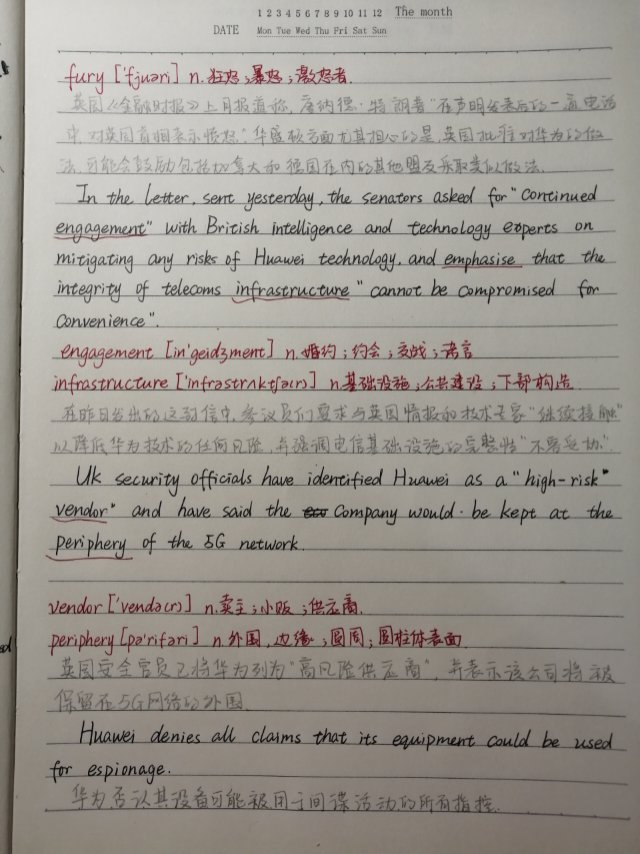 1 2 3 4 5 6 7 8 9 10 11 12 The month
DATE Mon Tue Wed Thu Fri Sat Sun
fury ['fjuəri] n.狂怒;暴怒;激怒者.
英国《金融时报》上月报道称,唐纳德·特朗普"在声明发表后的一通电话
中,对英国首相表示愤怒."华盛顿方面尤其担心的是,英国批准对华为的做
法,可能会鼓励包括加拿大和德国在内的其他盟友采取类似做法.
In the letter, sent yesterday, the senators asked for "continued
engagement" with British intelligence and technology experts on
mitigating any risks of Huawei technology, and emphasise that the
integrity of telecoms infrastructure "cannot be compromised for
convenience".
engagement [in'geidʒment] n.婚约;约会;交战;诺言
infrastructure ['infrəstrʌktʃə(r)] n.基础设施;公共建设;下部构造
在昨日发出的这封信中,参议员们要求与英国情报和技术专家"继续接触"
以降低华为技术的任何风险,并强调电信基础设施的完整性"不容妥协".
UK security officials have identified Huawei as a "high-risk"
vendor" and have said the company would be kept at the
periphery of the 5G network.
vendor ['vendə(r)] n.卖主;小贩;供应商.
periphery [pə'rifəri] n.外围,边缘;圆周;圆柱体表面.
英国安全官员已将华为列为"高风险供应商",并表示该公司将被
保留在5G网络的外围.
Huawei denies all claims that its equipment could be used
for espionage.
华为否认其设备可能被用于间谍活动的所有指控.